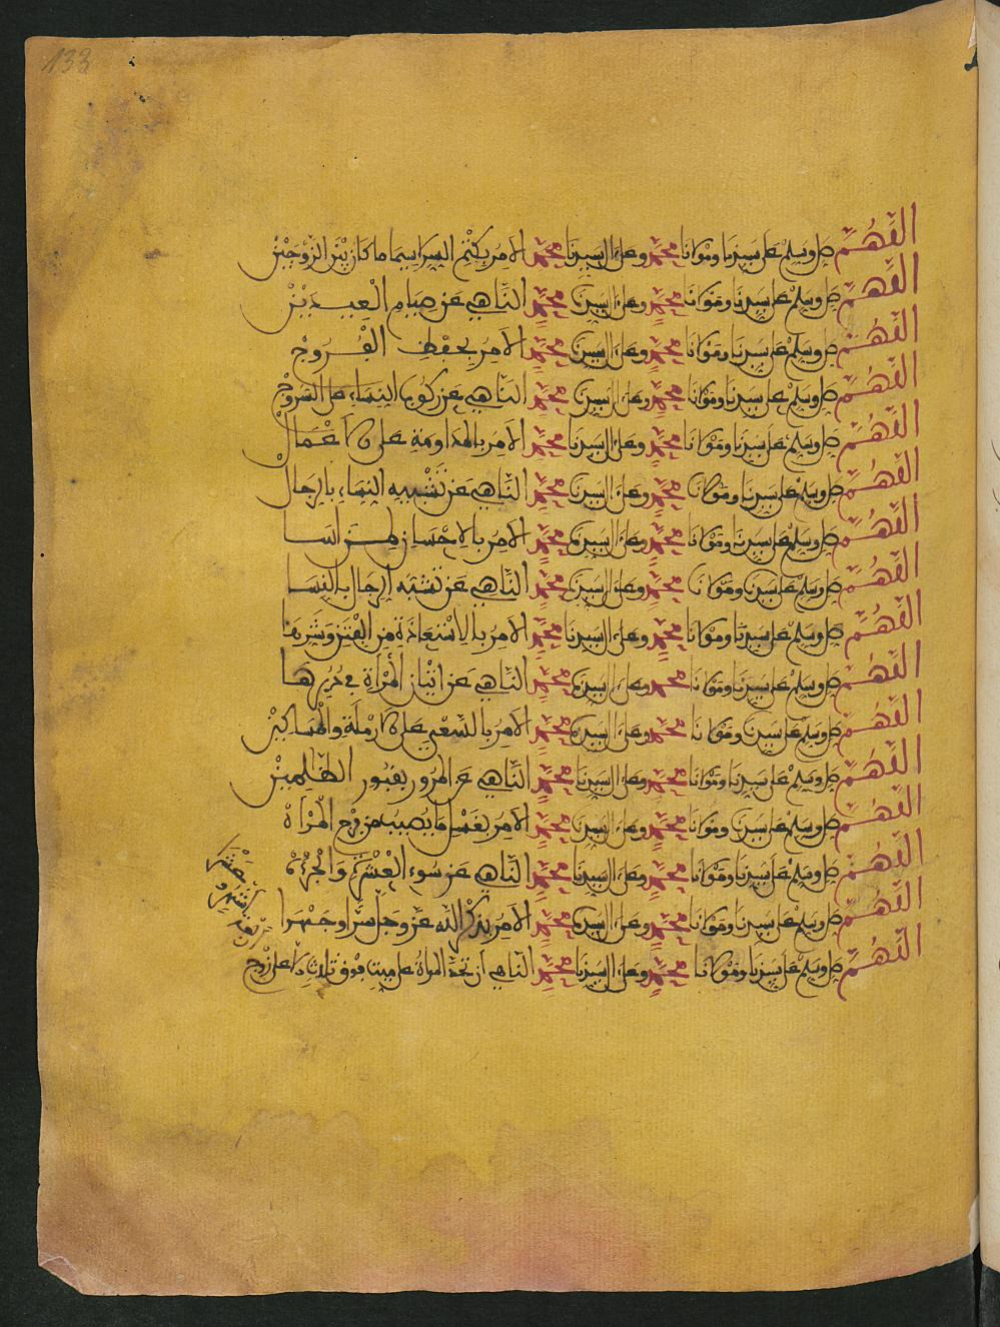 133
اللهم صل وسلم على سيدنا ومولانا محمد وعلى ال سيدنا محمد الامر بكتم السر سيما ما كان بين الزوجين
اللهم صل وسلم على سيدنا ومولانا محمد وعلى ال سيدنا محمد الناهي عن صيام العيدين
اللهم صل وسلم على سيدنا ومولانا محمد وعلى ال سيدنا محمد الامر بحفظ الفروج
اللهم صل وسلم على سيدنا ومولانا محمد وعلى ال سيدنا محمد الناهي عن ركوب النساء على السروج
اللهم صل وسلم على سيدنا ومولانا محمد وعلى ال سيدنا محمد الامر بالمداومة على الاعمال
اللهم صل وسلم على سيدنا ومولانا محمد وعلى ال سيدنا محمد الناهي عن تشبيه النساء بالرجال
اللهم صل وسلم على سيدنا ومولانا محمد وعلى ال سيدنا محمد الامر بالاحسان لمن اسا
اللهم صل وسلم على سيدنا ومولانا محمد وعلى ال سيدنا محمد الناهي عن تشبه الرجال بالنسا
اللهم صل وسلم على سيدنا ومولانا محمد وعلى ال سيدنا محمد الامر بالاستعاذة من الفتن وشرها
اللهم صل وسلم على سيدنا ومولانا محمد وعلى ال سيدنا محمد الناهي عن اتيان المراة في دبرها
اللهم صل وسلم على سيدنا ومولانا محمد وعلى ال سيدنا محمد الامر بالسعي على الارملة والمساكين
اللهم صل وسلم على سيدنا ومولانا محمد وعلى ال سيدنا محمد الناهي عن المرور بقبور الظلمين
اللهم صل وسلم على سيدنا ومولانا محمد وعلى ال سيدنا محمد الامر بغسل ما يصيب من فرج المراة
اللهم صل وسلم على سيدنا ومولانا محمد وعلى ال سيدنا محمد الناهي عن سوء العشرة والجرءة
اللهم صل وسلم على سيدنا ومولانا محمد وعلى ال سيدنا محمد الامر بذكر الله عز وجل سرا وجهرا
اللهم صل وسلم على سيدنا ومولانا محمد وعلى ال سيدنا محمد الناهي ان تحد المراة على ميت فوق ثلاث الا على زوج
اربعة اشهر وعشر